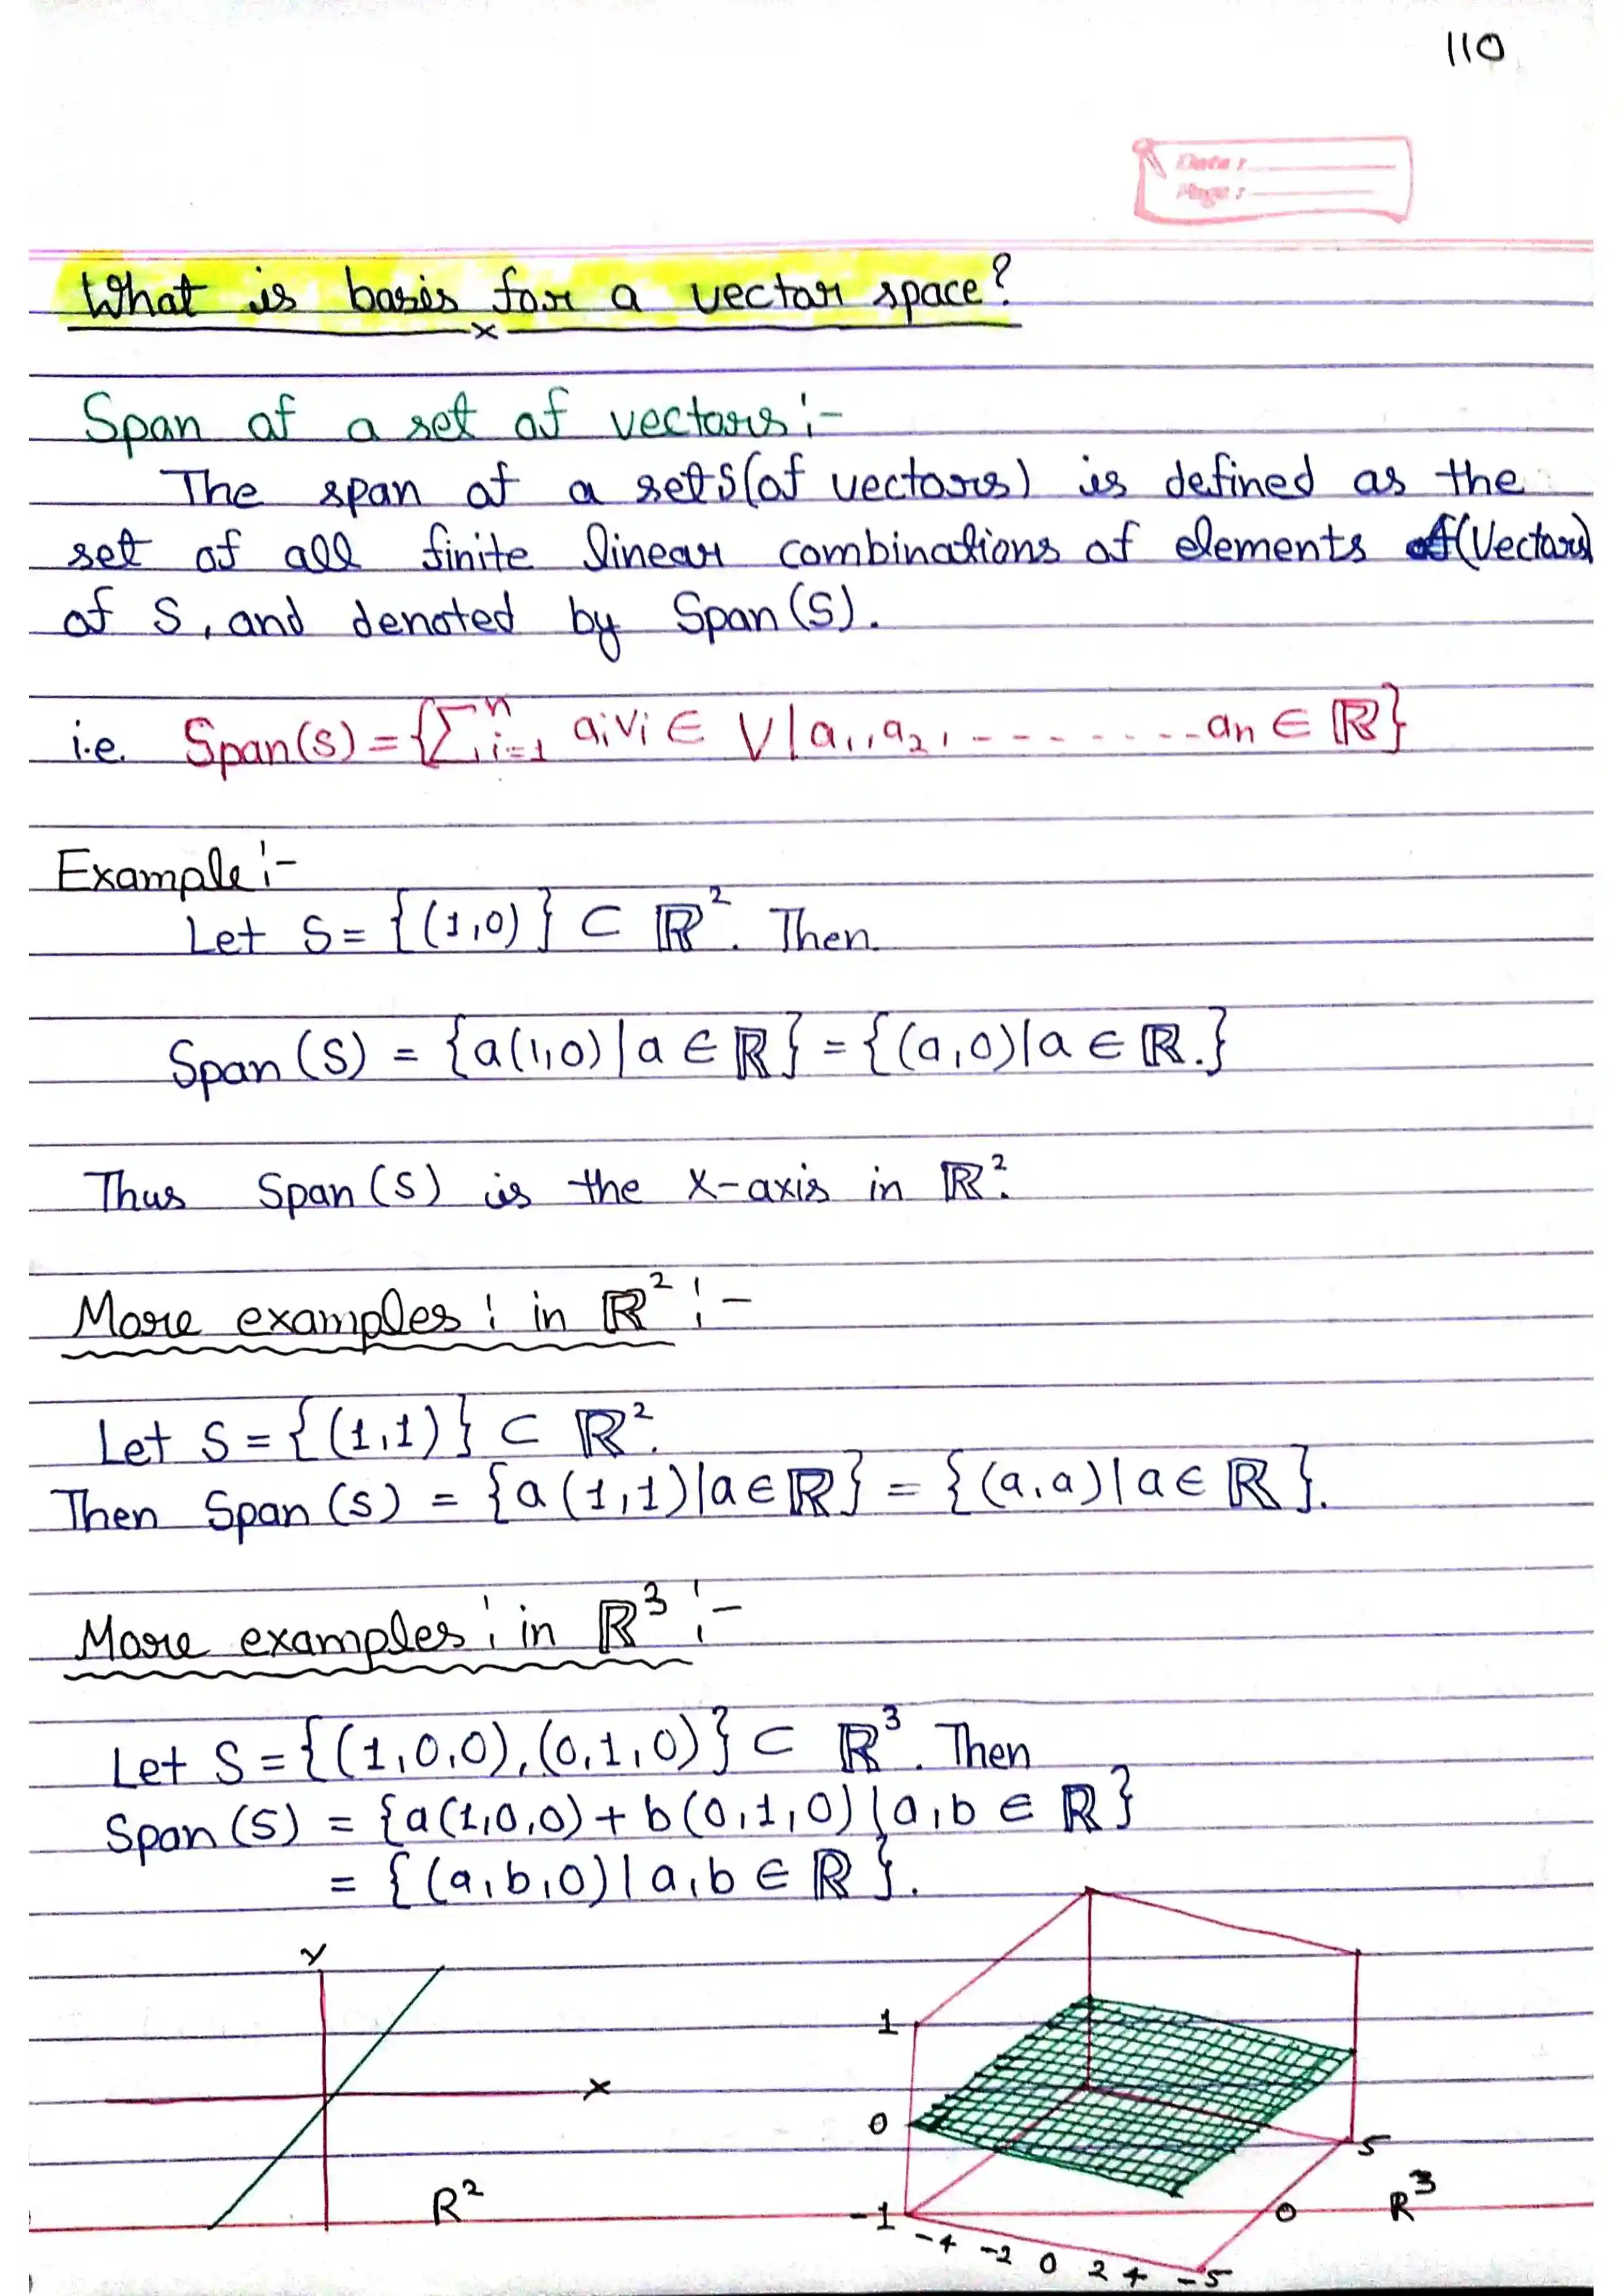 110
Date :
Page :
What is basis for a vector space?
Span of a set of vectors :-
The span of a set S (of vectors) is defined as the
set of all finite linear combinations of elements (Vectors)
of S, and denoted by Span (S).
i.e. Span(S) = {∑ⁿᵢ₌₁ aᵢvᵢ ∈ V | a₁, a₂, - - - - - - - - aₙ ∈ ℝ}
Example :-
Let S = {(1,0)} ⊂ ℝ². Then.
Span (S) = {a(1,0) | a ∈ ℝ} = {(a,0) | a ∈ ℝ.}
Thus Span (S) is the X-axis in ℝ².
More examples : in ℝ² :-
Let S = {(1,1)} ⊂ ℝ².
Then Span (S) = {a (1,1) | a ∈ ℝ} = {(a,a) | a ∈ ℝ}.
More examples : in ℝ³ :-
Let S = {(1,0,0), (0,1,0)} ⊂ ℝ³. Then
Span (S) = {a(1,0,0) + b(0,1,0) | a,b ∈ ℝ}
= {(a,b,0) | a,b ∈ ℝ}.
Y
X
R²
1
0
-1
-4 -2 0 2 4 -5
0
5
R³